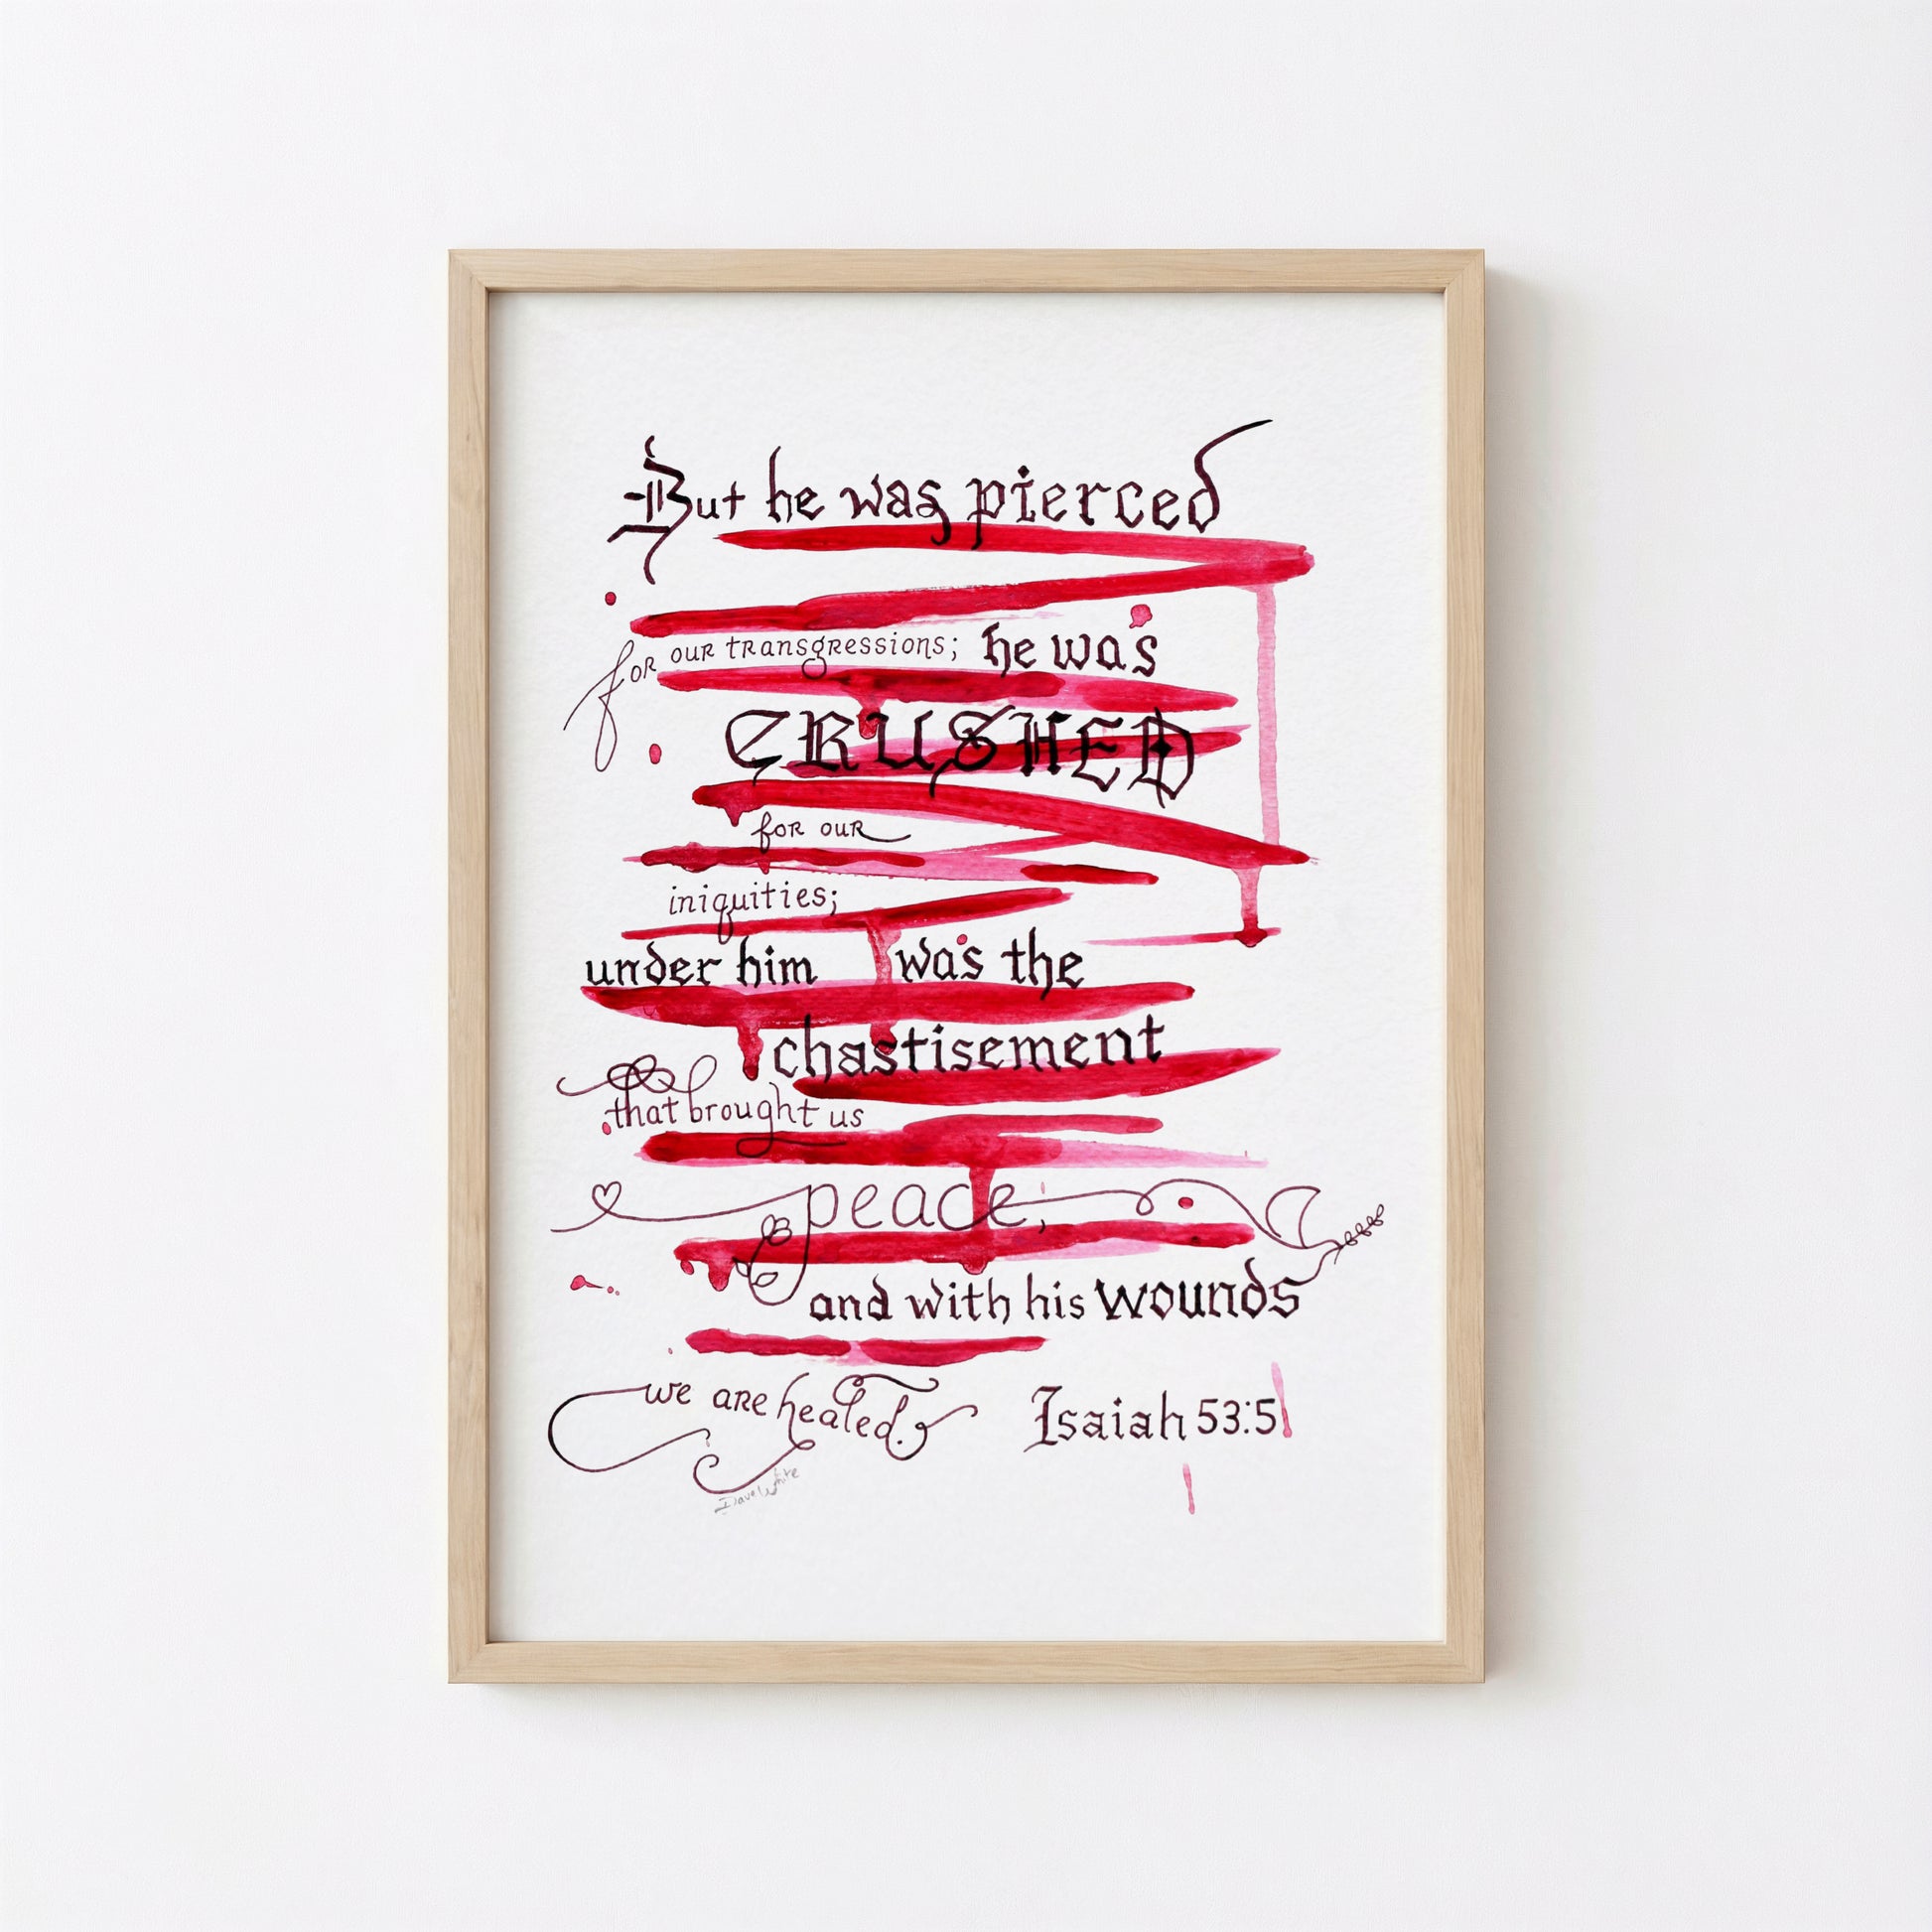 But he was pierced
for our transgressions; he was
CRUSHED
for our
iniquities;
under him was the
chastisement
that brought us
peace;
and with his wounds
we are healed.
Isaiah 53:5
Dave White